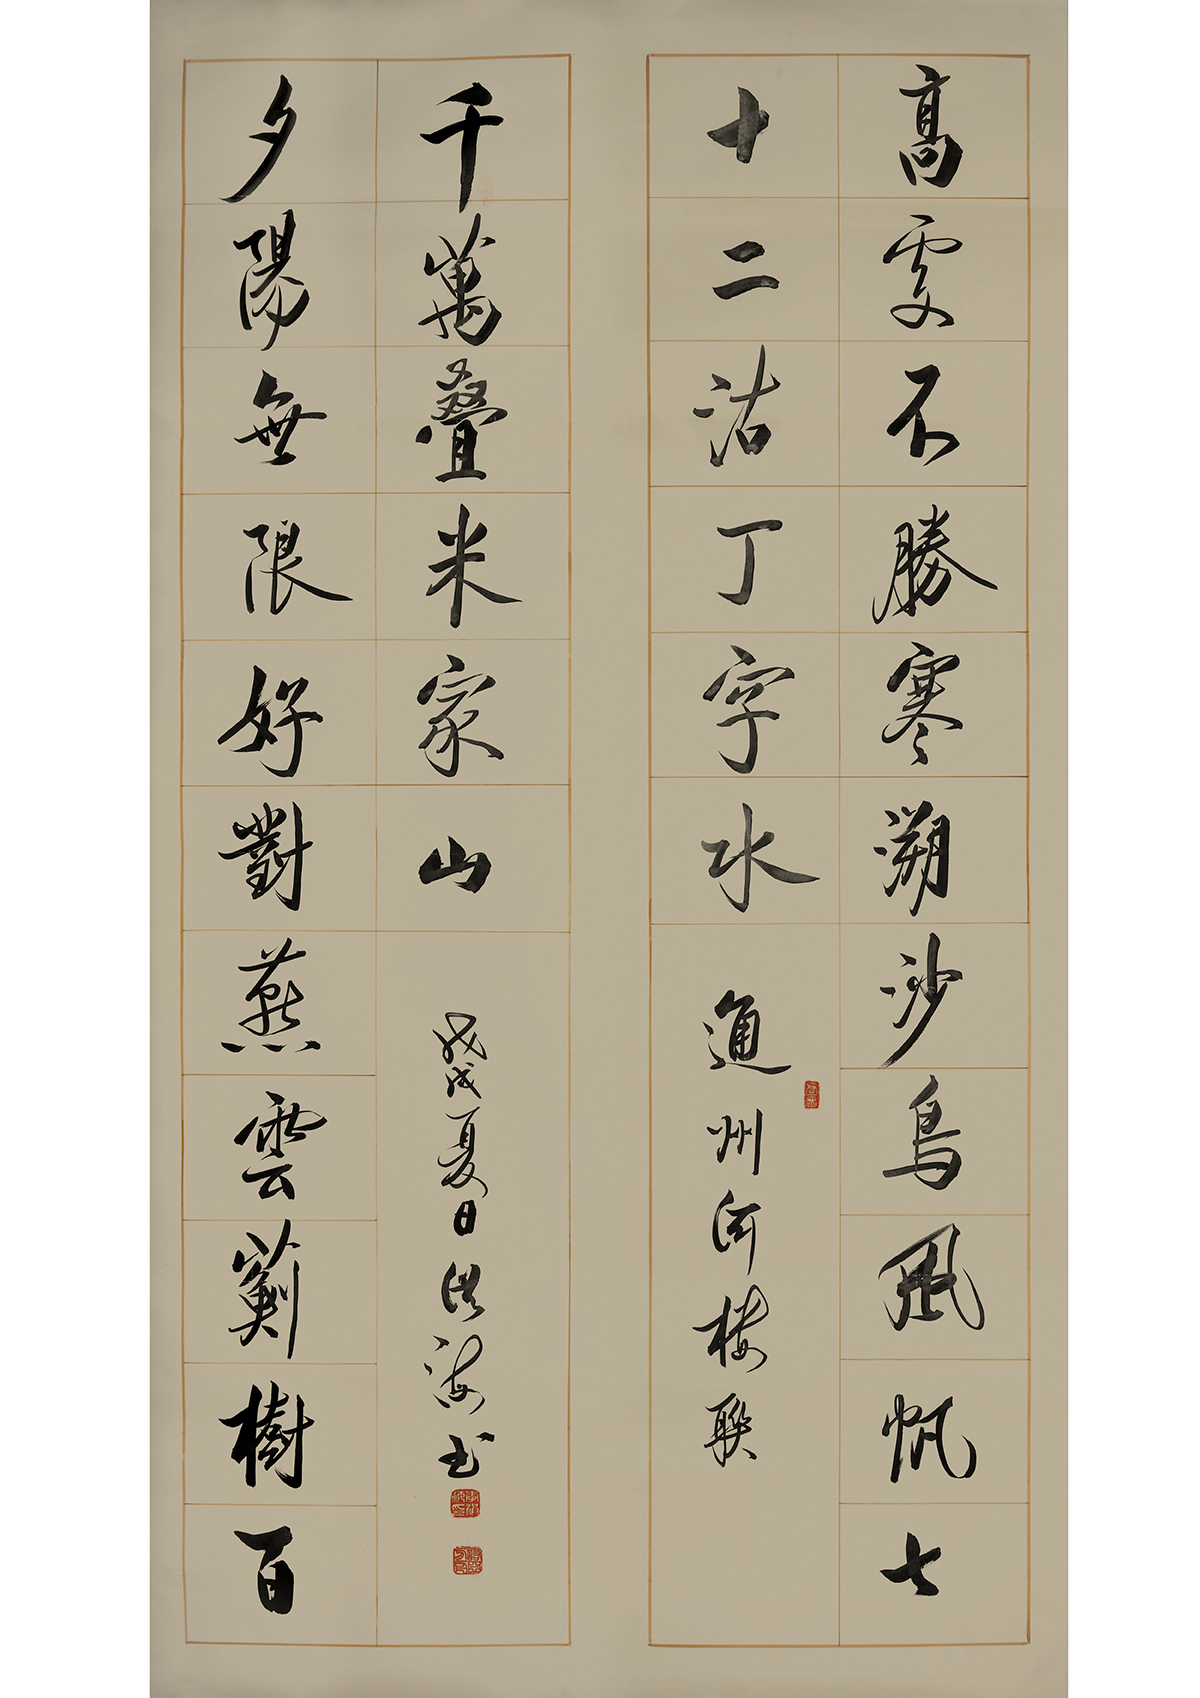 高處不勝寒溯沙鳥風帆七
十二沽丁字水
通州河樓聯
夕陽無限好對燕雲薊樹百
千萬疊米家山
戊戌夏日洪海书